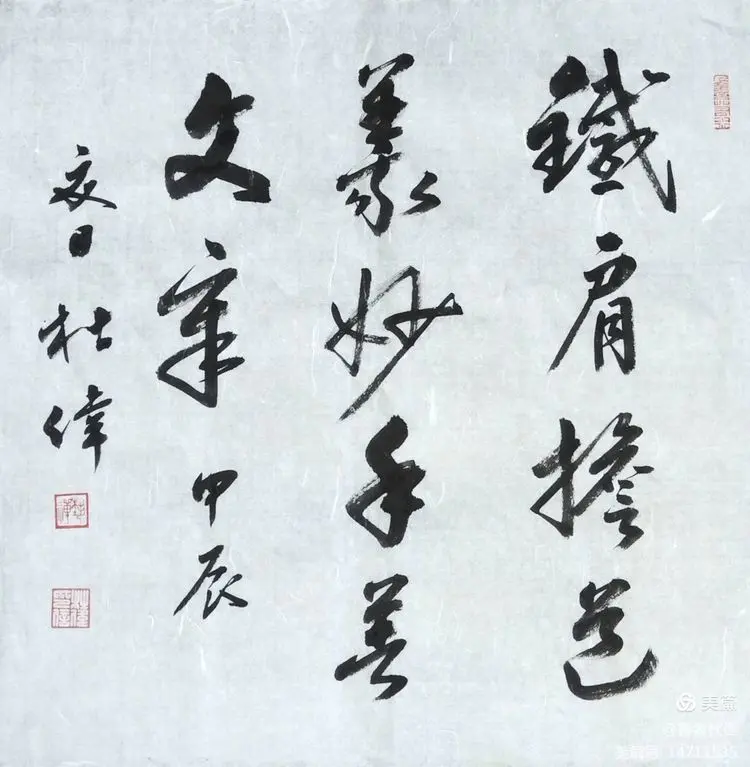 鐵肩擔道
義妙手著
文章 甲辰
夏日 杜偉
美篇